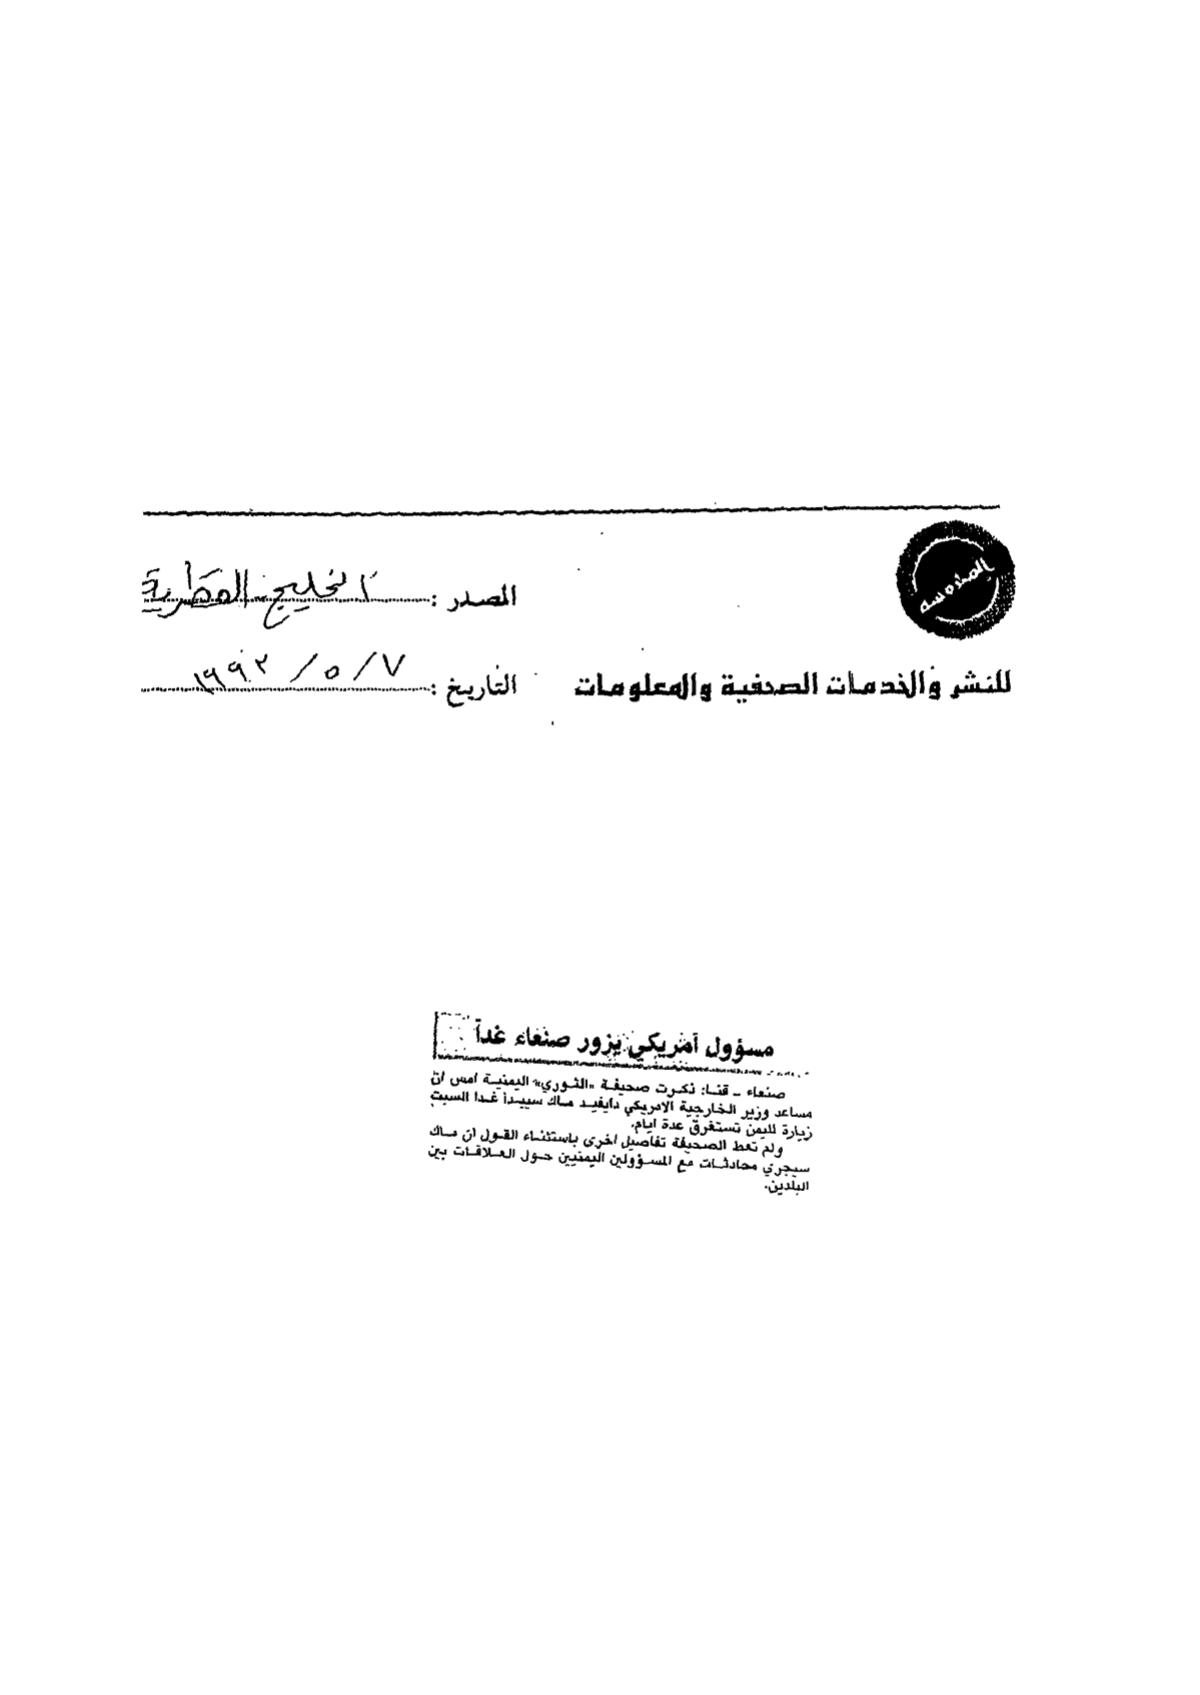 المصدر : الخليج القطرية
للنشر والخدمات الصحفية والمعلومات
التاريخ : ٧ / ٥ / ١٩٩٣
مسؤول أمريكي يزور صنعاء غداً
صنعاء ـ قنا: ذكرت صحيفة «الثوري» اليمنية امس ان
مساعد وزير الخارجية الامريكي دايفيد ماك سيبدأ غدا السبت
زيارة لليمن تستغرق عدة ايام.
ولم تعط الصحيفة تفاصيل اخرى باستثناء القول ان ماك
سيجري محادثات مع المسؤولين اليمنيين حول العلاقات بين
البلدين.